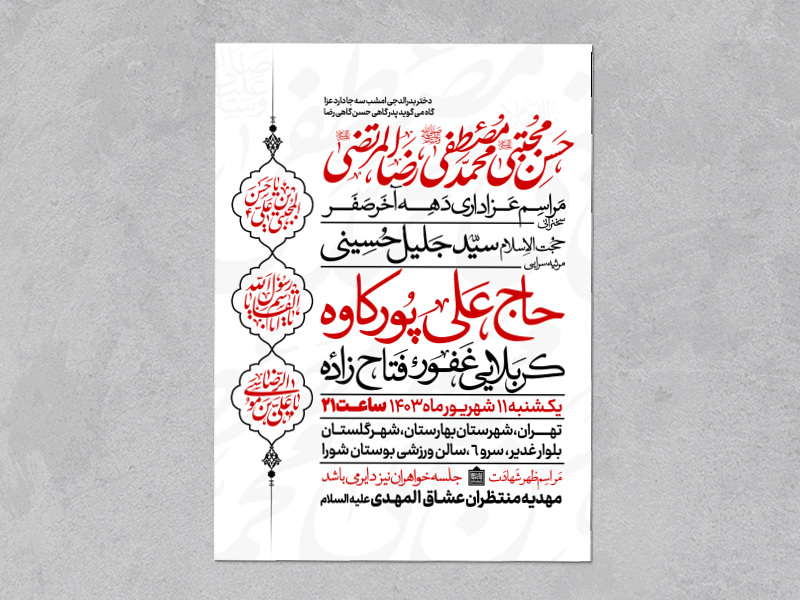 دختر بدرالدجی امشب سه جا دارد عزا
گاه می گوید پدر گاهی حسن گاهی رضا
حسن مجتبی محمد مصطفی رضا المرتضی
مراسم عزاداری دهه آخر صفر
سخنرانی
حجت الاسلام سید جلیل حسینی
مرثیه سرایی
حاج علی پورکاوه
کربلایی غفور فتاح زاده
یکشنبه ۱۱ شهریور ماه ۱۴۰۳ ساعت ۲۱
تهران، شهرستان بهارستان، شهر گلستان
بلوار غدیر، سرو ۶، سالن ورزشی بوستان شورا
مراسم ظهر شهادت جلسه خواهران نیز دایر می باشد
مهدیه منتظران عشاق المهدی علیه السلام
یا حسن بن علی المجتبی
یا رسول الله یا اباالقاسم
یا علی بن موسی الرضا